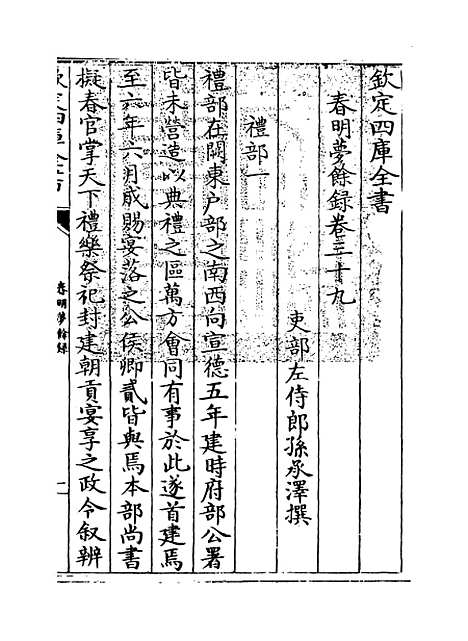 欽定四庫全書
春明夢餘録卷三十九
吏部左侍郎孫承澤撰
禮部一
禮部在闕東户部之南西向宣德五年建時府部公署
皆未營造以典禮之區萬方會同有事於此遂首建焉
至六年六月成賜宴落之公侯卿貳皆與焉本部尚書
擬春官掌天下禮樂祭祀封建朝貢宴享之政令叙辨
春明夢餘録